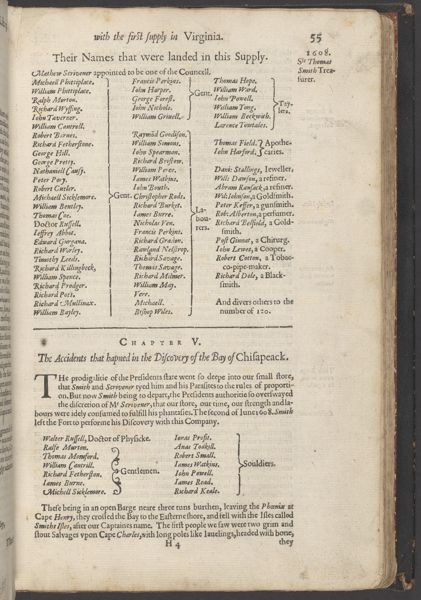 with the first supply in Virginia.
55
Their Names that were landed in this Supply.
1608.
Sir Thomas
Smith Trea-
surer.
Mathew Scrivener appointed to be one of the Councell.
Michaell Phittiplace.
William Phittiplace.
Ralph Morton.
Richard Wyffing.
John Taverner.
William Cantrell.
Robert Barnes.
Richard Fetherstone.
George Hill.
George Pretty.
Nathaniell Causy.
Peter Pory.
Robert Cutler.
Michaell Sicklemore.
William Bentley.
Thomas Coe.
Doctor Russell.
Jeffrey Abbot.
Edward Gurgana.
Richard Worley.
Timothy Leeds.
Richard Killingbeck,
William Spence.
Richard Prodger.
Richard Pots.
Richard Mullinax.
William Bayley.
Gent.
Francis Perkins.
John Harper.
George Forest.
John Nichols.
William Grivell.
Gent.
Raymōd Goodison.
William Simons,
John Spearman.
Richard Bristow.
William Perce.
Iames Watkins.
John Bouth.
Christopher Rods.
Richard Burket.
Iames Burre.
Nicholas Ven.
Francis Perkins.
Richard Gradon.
Rawland Nelstrop.
Richard Savage.
Thomas Savage.
Richard Milmer.
William May.
Vere.
Michaell.
Bishop Wiles.
La-
bou-
rers.
Thomas Hope.
William Ward.
John Powell.
William Yong.
William Beckwith.
Larence Towtales.
Tay-
lers.
Thomas Field,
John Harford,
Apothe-
caries.
Dani: Stallings, Jeweller.
Will: Dawson, a refiner.
Abram Ransack, a refiner.
Wil: Johnson, a Goldsmith.
Peter Keffer, a gunsmith.
Rob: Alberton, a perfumer.
Richard Belfield, a Gold-
smith.
Post Ginnat, a Chirurg.
John Lewes, a Cooper.
Robert Cotton, a Tobac-
co-pipe-maker.
Richard Dole, a Black-
smith.
And divers others to the
number of 120.
CHAPTER V.
The Accidents that hapned in the Discovery of the Bay of Chisapeack.
THe prodigalitie of the Presidents state went so deepe into our small store,
that Smith and Scrivener tyed him and his Parasites to the rules of proporti-
on. But now Smith being to depart, the Presidents authoritie so overswayed
the discretion of Mr Scrivener, that our store, our time, our strength and la-
bours were idely consumed to fulfill his phantasies. The second of Iune 1608. Smith
left the Fort to performe his Discovery with this Company.
Walter Russell, Doctor of Physicke.
Ralfe Murton.
Thomas Momford.
William Cantrill.
Richard Fetherston.
Iames Burne.
Michell Sicklemore.
Gentlemen.
Ionas Profit.
Anas Todkill.
Robert Small.
Iames Watkins.
John Powell.
Iames Read.
Richard Keale.
Souldiers.
These being in an open Barge neare three tuns burthen, leaving the Phœnix at
Cape Henry, they crossed the Bay to the Easterne shore, and fell with the Isles called
Smiths Isles, after our Captaines name. The first people we saw were two grim and
stout Salvages upon Cape Charles, with long poles like Iavelings, headed with bone,
H 4
they